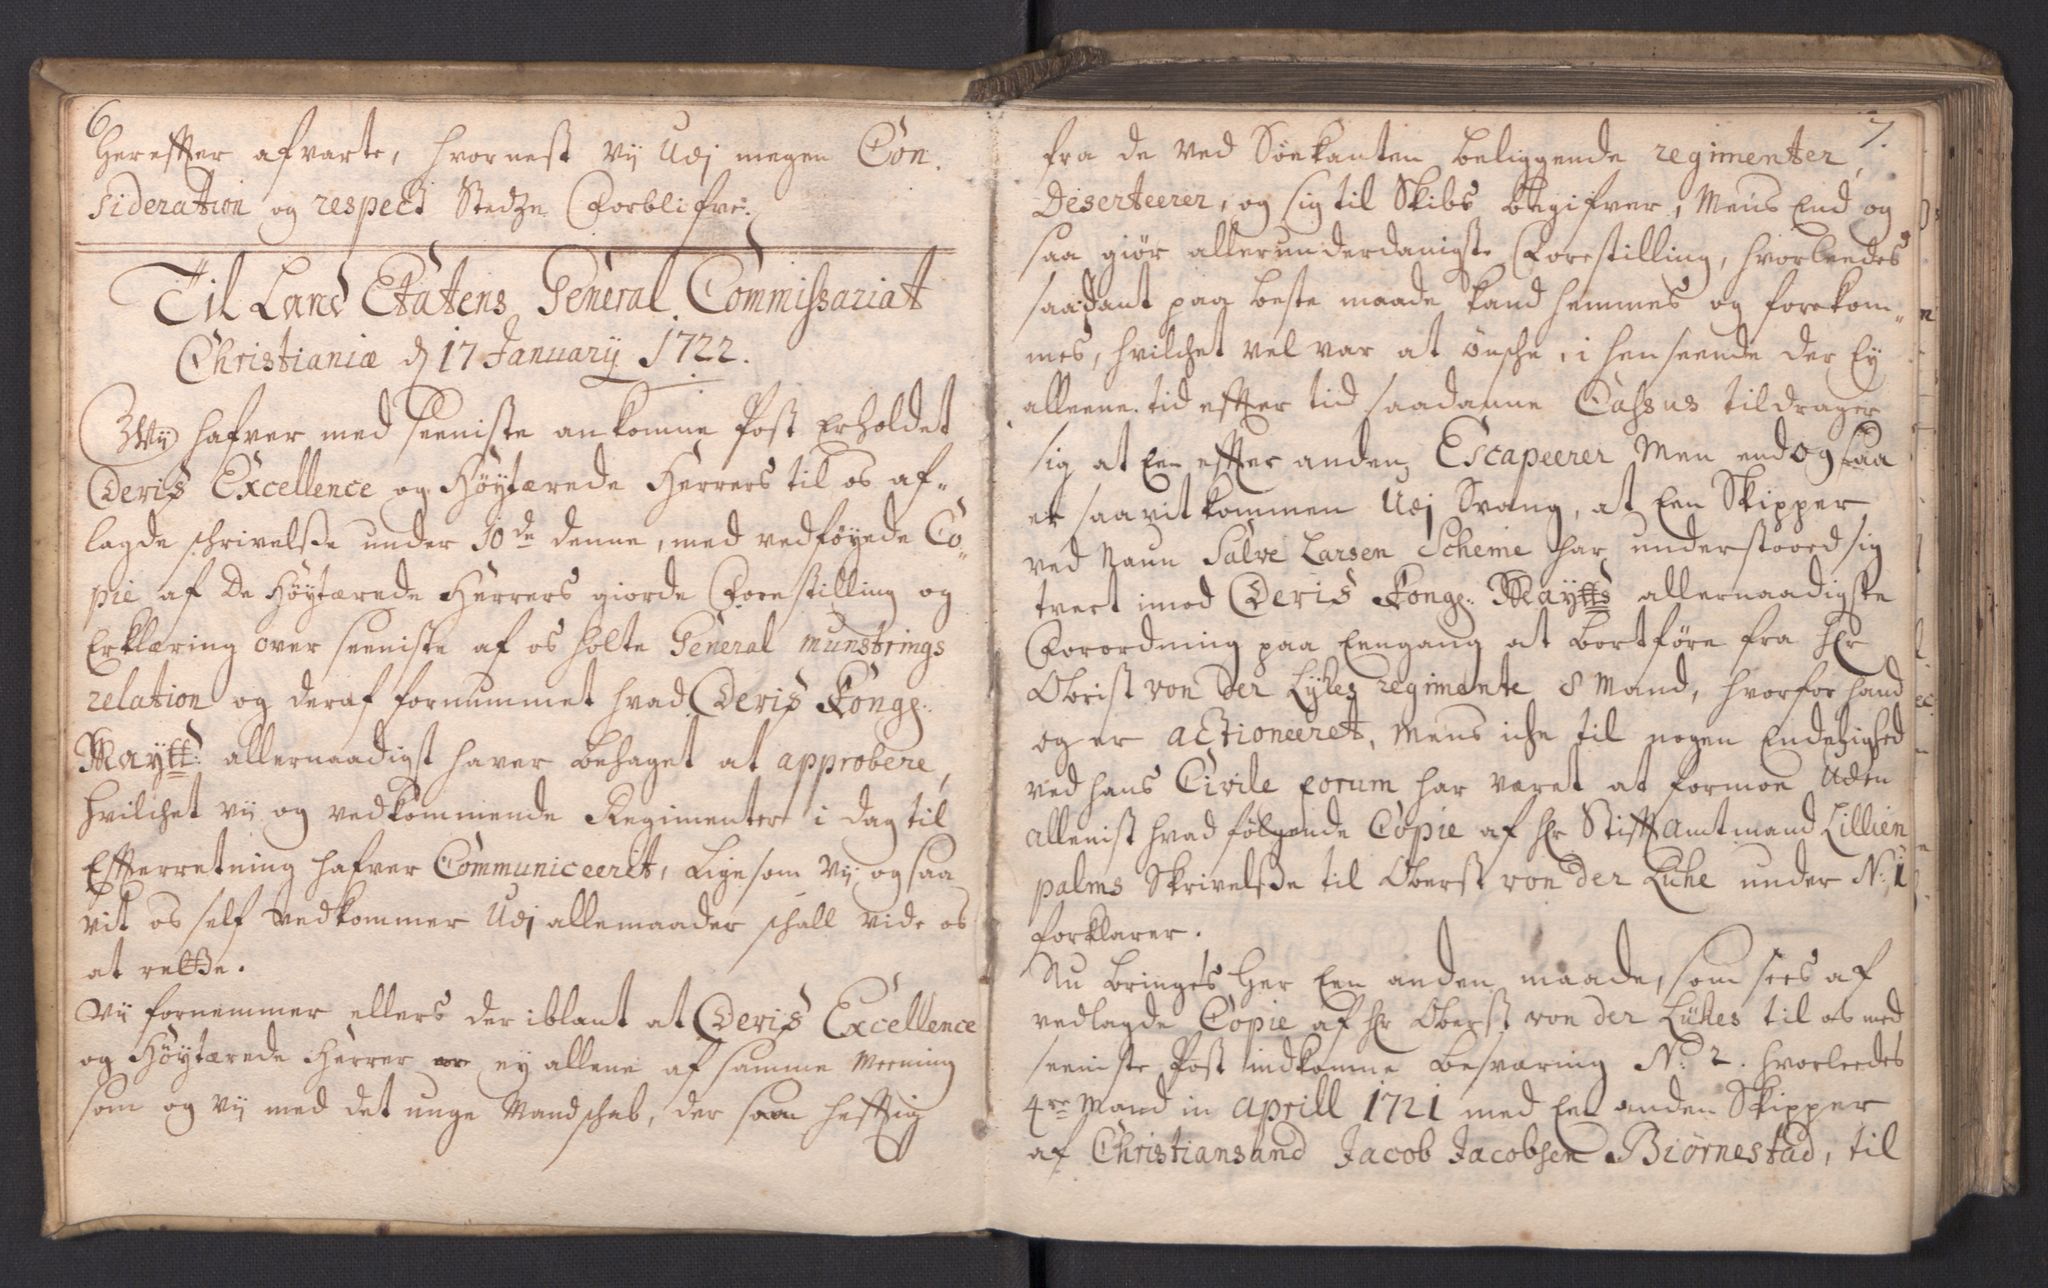 6
hereffter afvarte, hvornest vij Udj megen Con-
sideration og respect Stedze Forblifve.
Til Land Etatens General Commissariat
Christianiæ d 17 January 1722.
Wij hafver med seeniste ankomne Post Erholdet
Deris Excellence og Høytærede Herrers til os af-
lagde schrivelße under 10de denne, med vedføyede Co-
pie af De Høytærede Herrers giorde Forestilling og
Erklæring over seeniste af os holte General munstrings
relation og deraf fornummet hvad Deris Konge:
Maytt: allernaadigst haver behaget at approbere,
hvilchet vij og vedkommende Regimenter i dag til
Effterretning hafver Communiceeret, Ligesom Vij og saa
vit os self vedkommer Udj allemaader schall vide os
at rette.
Vij fornemmer ellers der iblant at Deris Excellence
og Høytærede Herrer er ey allene af samme Meening
som og Vij med det unge Mandschab, der saa hefftig
7.
fra de ved Søekanten beliggende regimenter,
Deserteerer, og sig til Skibs begifver, Mens End og
saa giør allerunderdanigste Forestilling, hvorleedes
saadant paa beste maade kand hemmes og forekom-
mes, hvilchet vel var at ønsche, i henseende der Ey
alleene tid effter tid saadanne Cassus tildrager
sig at Een effter anden Escapeerer Men endogsaa
er saavit kommen Udj Svang, at Een Skipper
ved Naun Salve Larsen Scheme har understooed sig
tvert imod Deris Konge: Maytts allernaadigste
Forordning paa Eengang at bortføre fra Hr
Obrist von der Lykes regimente 8 Mand, hvorfor hand
og er actioneeret, Mens iche til nogen Endelighed
ved hans Civile forum har været at formoe Uden
allenist hvad følgende Copie af Hr Stifftamtmand Lillien
palms Skrivelße til Oberst von der Lühe under N: 1
forklarer.
Nu bringes Her Een anden maade, som sees af
vedlagde Copie af Hr Oberst von der Lühes til os med
seeniste Post indkomne besværing N: 2. hvorleedes
4re Mand in Aprill 1721 med Een anden Skipper
af Christiansand Jacob Jacobsen Biørnestad, til